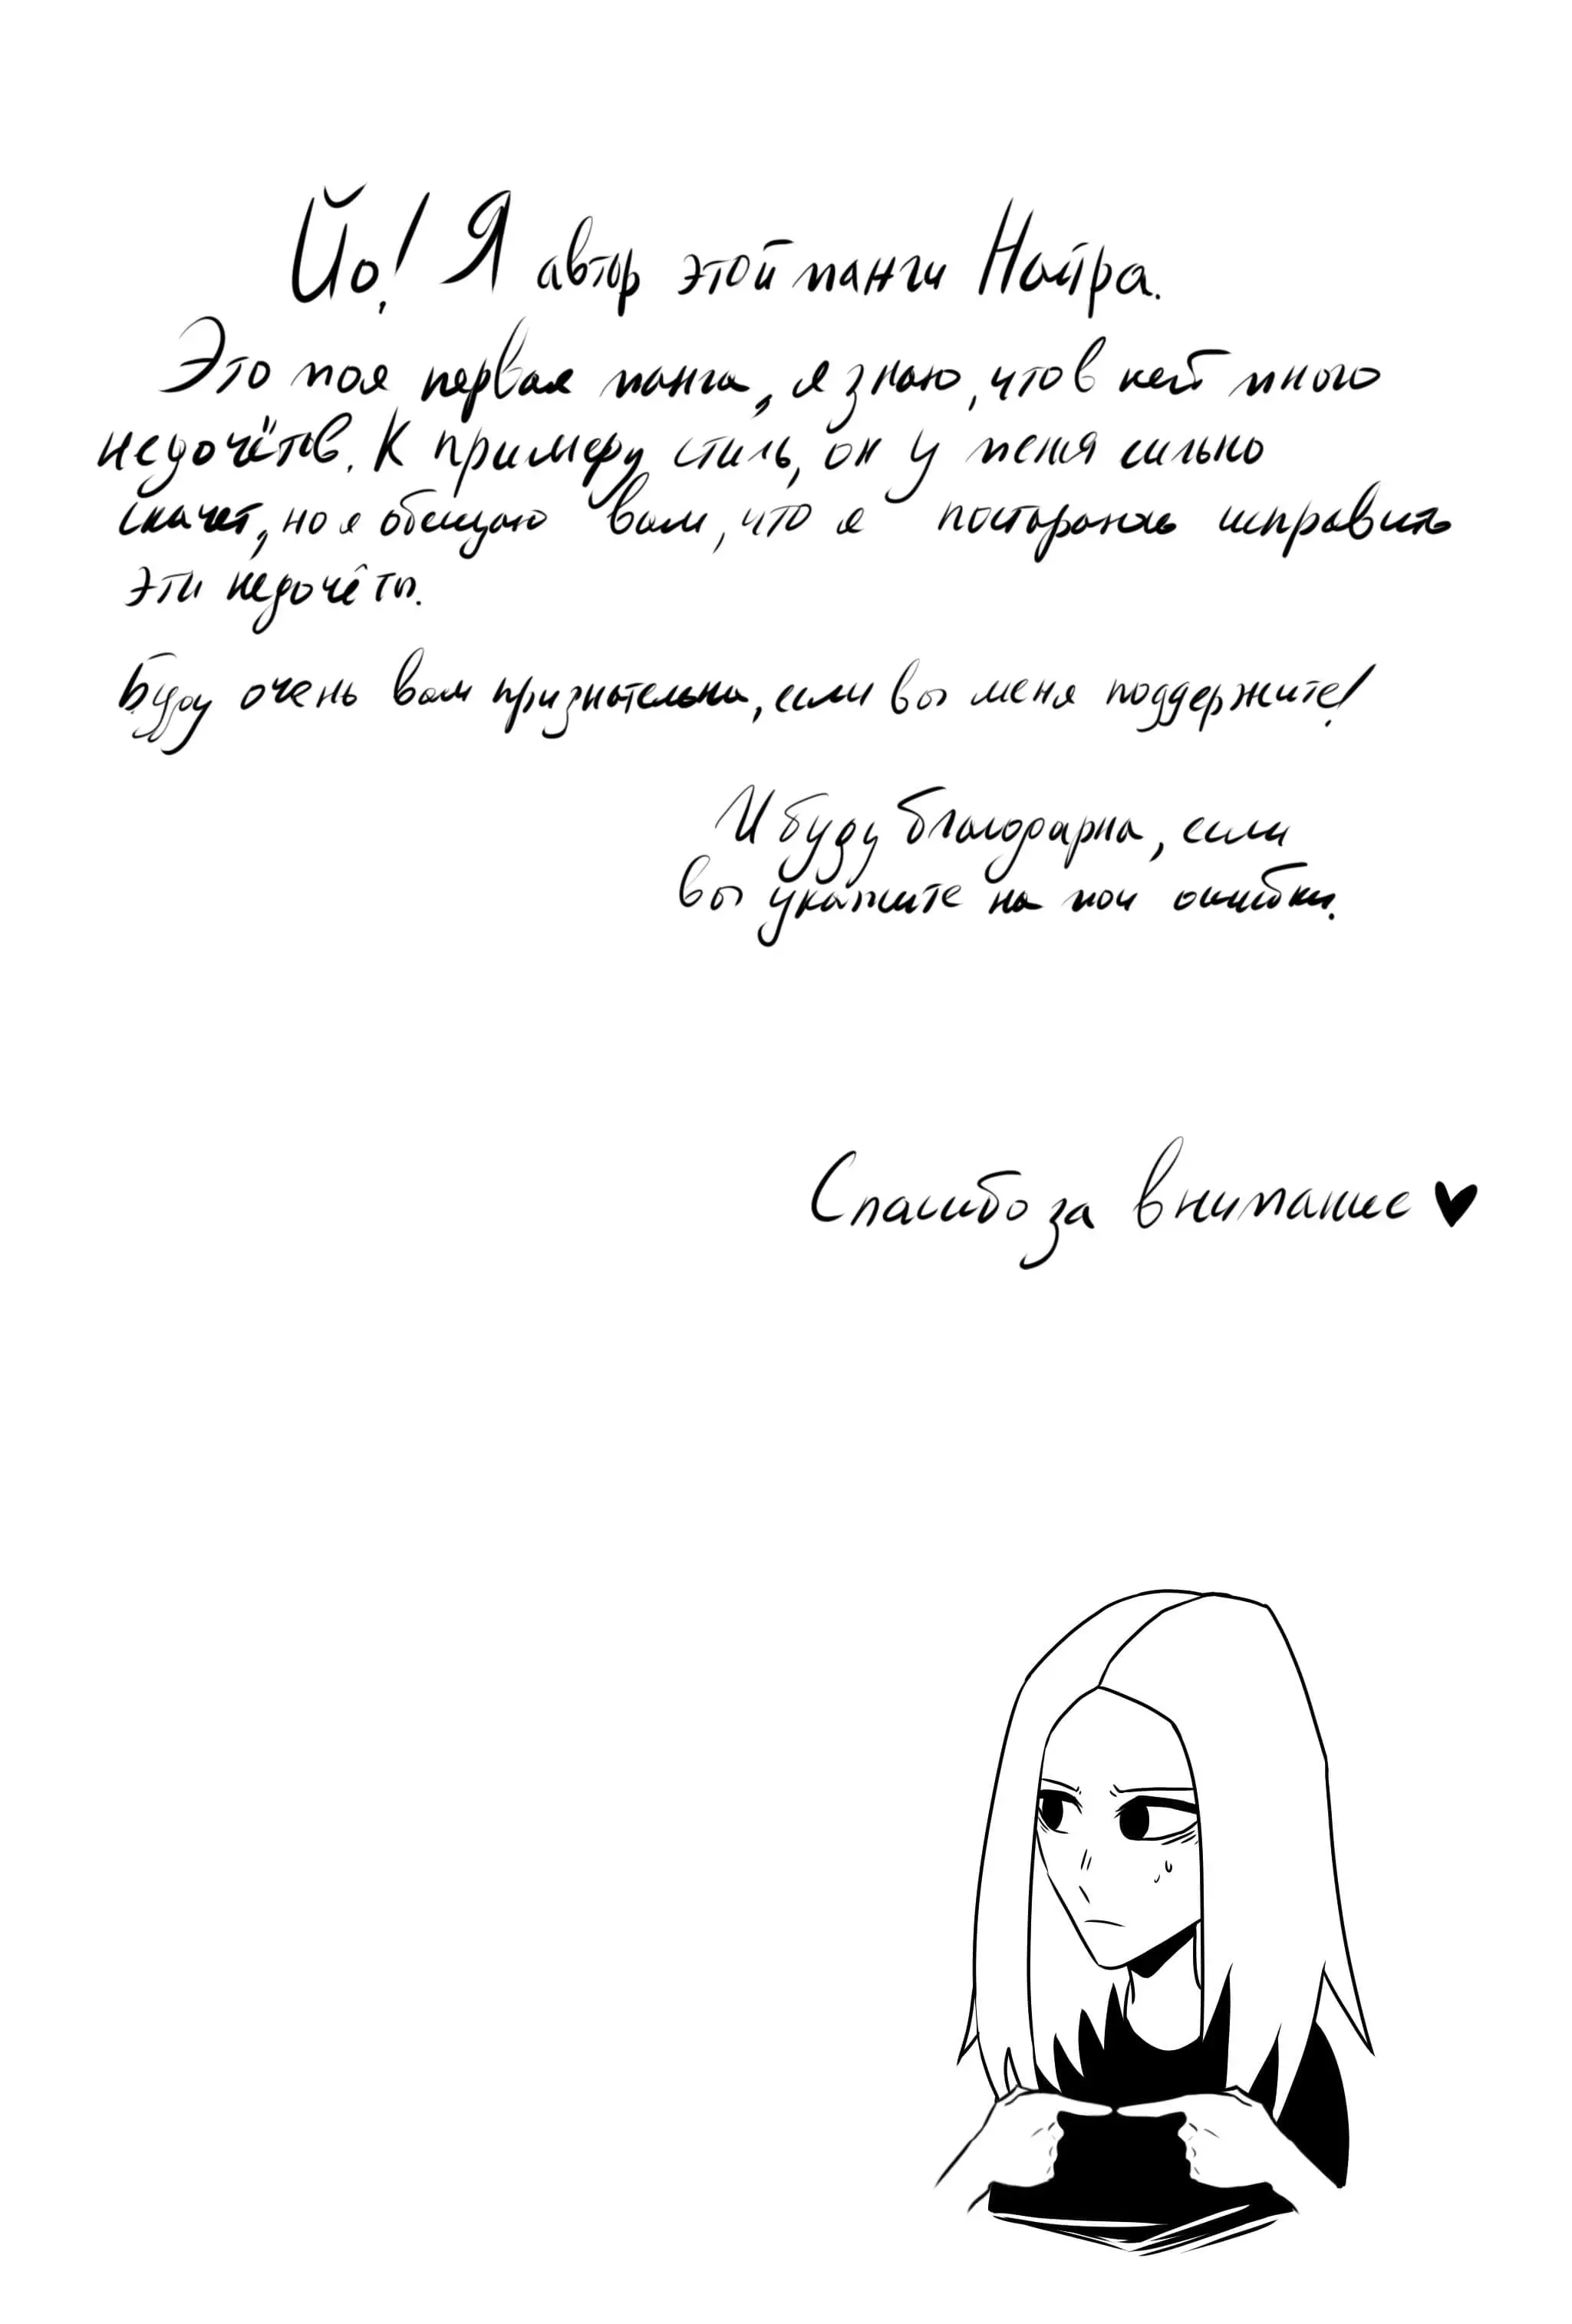 Йо! Я автор этой манги Найра.
Это моя первая манга, я знаю, что в ней много
недочётов. К примеру стиль, он у меня сильно
скачет, но я обещаю вам, что я постараюсь исправить
эти недочёты.
Буду очень вам признательна, если вы меня поддержите!
И буду благодарна, если
вы укажите на мои ошибки.
Спасибо за внимание ♥